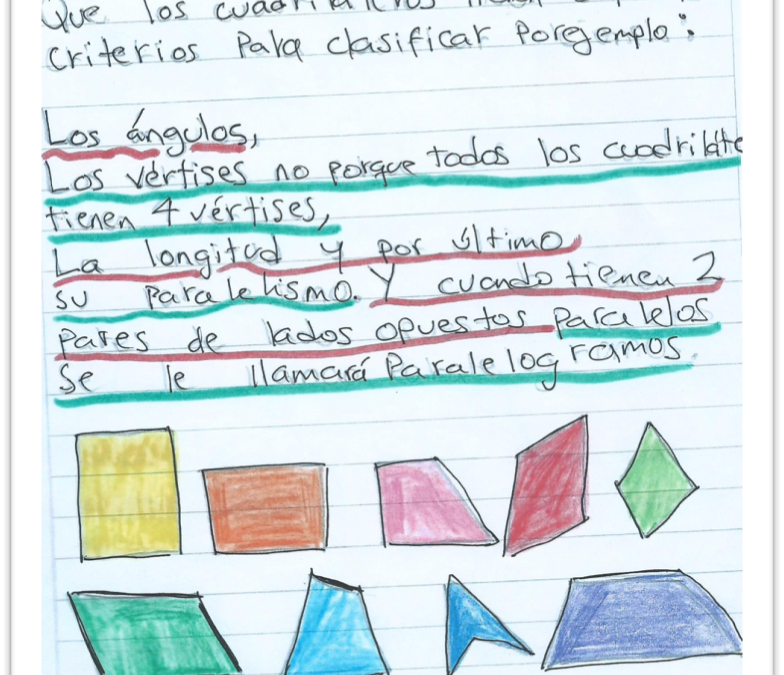 Que los
criterios Para clasificar Poregemplo:
Los ángulos,
Los vértises no porque todos los cuadriláte
tienen 4 vértises,
La longitud y por último
su Paralelismo. Y cuando tienen 2
pares de lados opuestos paralelos
Se le llamará Paralelogramos.